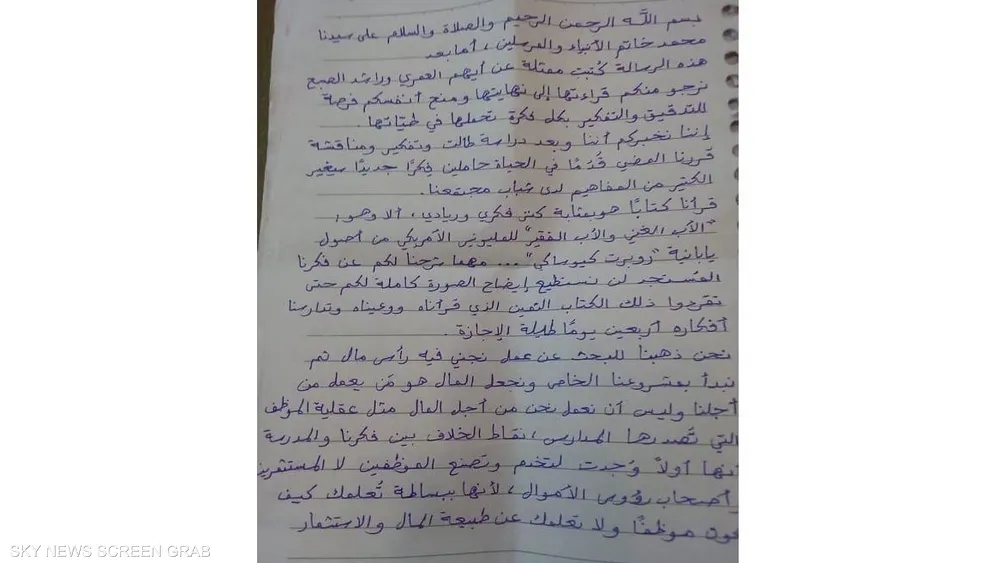 بسم الله الرحمن الرحيم والصلاة والسلام على سيدنا
محمد خاتم الأنبياء والمرسلين، أما بعد
هذه الرسالة كُتبت ممثلة عن أيهم العمري وراشد الصبح
نرجو منكم قراءتها إلى نهايتها ومنح أنفسكم فرصة
للتدقيق والتفكير بكل فكرة تحملها في طياتها.
إننا نخبركم أننا وبعد دراسة طالت وتفكير ومناقشة
قررنا المضي قُدمًا في الحياة حاملين فِكرًا جديدًا سيغير
الكثير من المفاهيم لدى شباب مجتمعنا.
قرأنا كتابًا هو بمثابة كنز فكري وريادي، ألا وهو:
"الأب الغني والأب الفقير" للمليونير الأمريكي من أصول
يابانية "روبرت كيوساكي"... مهما شرحنا لكم عن فكرنا
المُستجد لن نستطيع إيضاح الصورة كاملة لكم حتى
تقرءوا ذلك الكتاب الثمين الذي قرأناه ووعيناه وتدارسنا
أفكاره أربعين يومًا طيلة الإجازة.
نحن ذهبنا للبحث عن عمل نجني فيه رأس مال ثم
نبدأ بمشروعنا الخاص ونجعل المال هو مَن يعمل من
أجلنا وليس أن نعمل نحن من أجل المال مثل عقلية الموظف
التي تُصدرها المدارس، نقاط الخلاف بين فكرنا والمدرسة
أنها أولاً وُجدت لتخدم وتصنع الموظفين لا المستثمرين
وأصحاب رؤوس الأموال، لأنها ببساطة تُعلمك كيف
تكون موظفًا ولا تعلمك عن طبيعة المال والاستثمار
SKY NEWS SCREEN GRAB